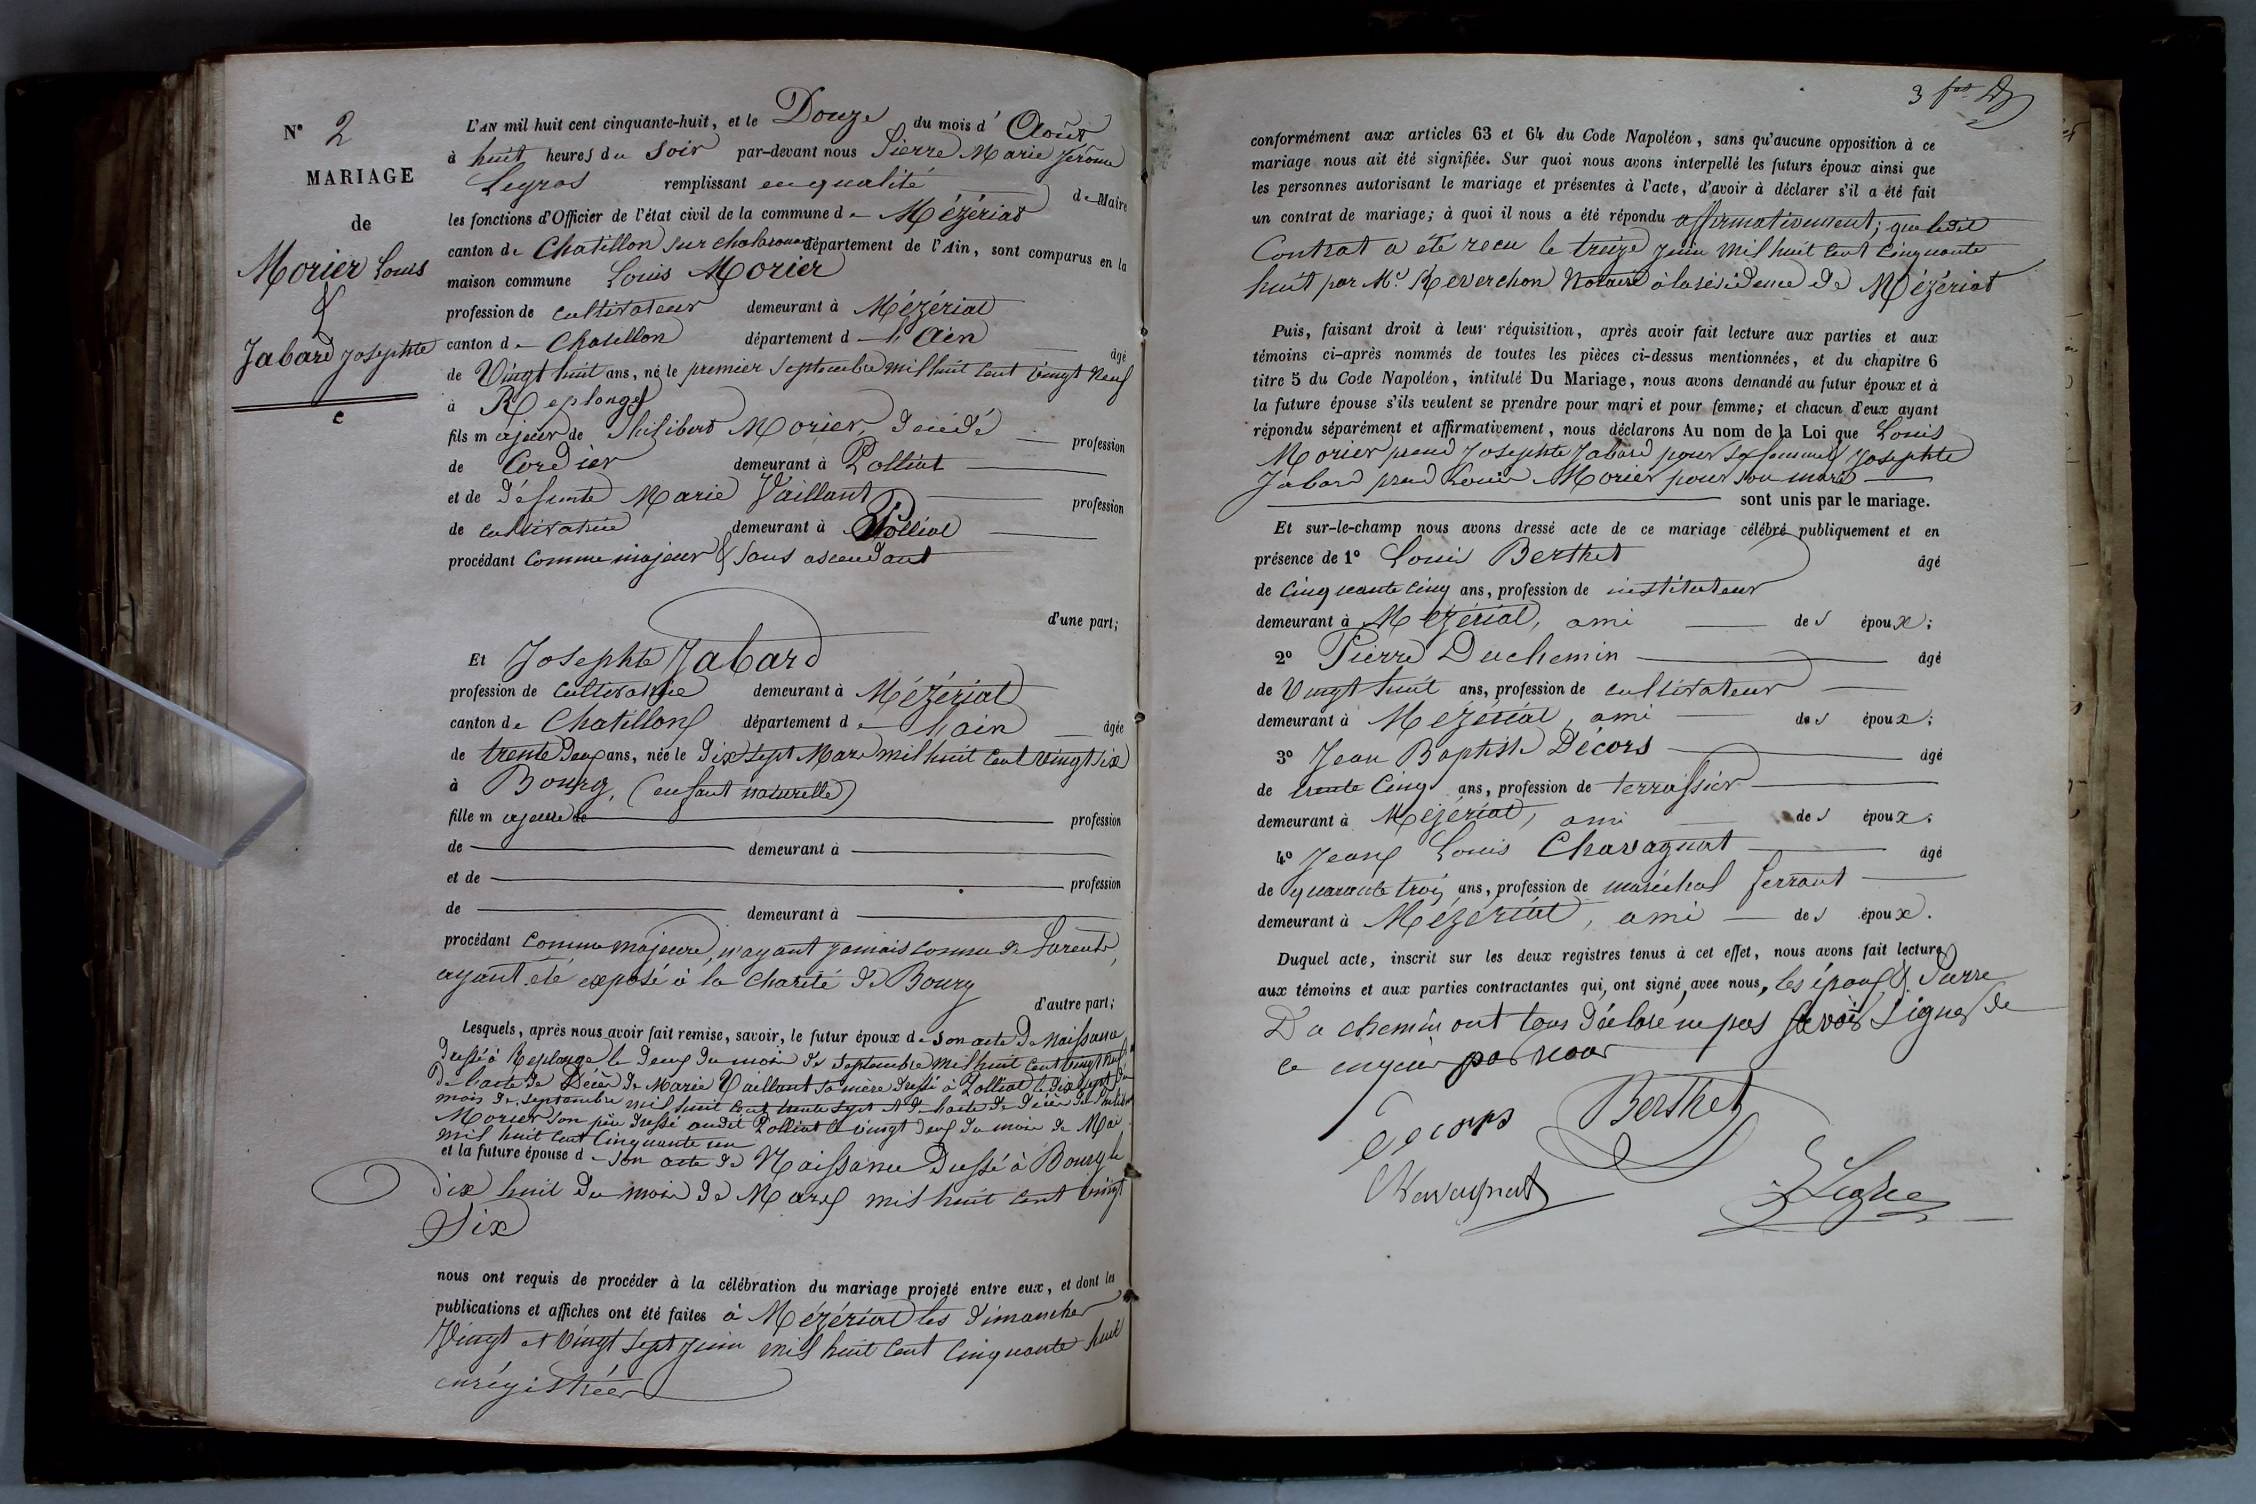 N° 2
MARIAGE
de
Morier Louis
&
Jabard Josephte
L'AN mil huit cent cinquante-huit, et le Douze du mois d'Août
à huit heures du Soir par-devant nous Pierre Marie Jérôme
Legros remplissant en qualité de Maire
les fonctions d'Officier de l'état civil de la commune de Mézériat
canton de Chatillon sur chalaronne département de l'Ain, sont comparus en la
maison commune Louis Morier
profession de cultivateur demeurant à Mézériat
canton de Chatillon département de l'Ain âgé
de Vingt huit ans, né le premier Septembre mil huit cent vingt neuf
à Replonges
fils majeur de Philibert Morier, décédé profession
de Cordier demeurant à Polliat
et de défunte Marie Vaillant profession
de cultivatrice demeurant à Polliat
procédant comme majeur & sans ascendant
d'une part;
Et Josephte Jabard
profession de cultivatrice demeurant à Mézériat
canton de Chatillon département de l'ain âgée
de trente deux ans, née le dix sept Mars mil huit cent vingt six
à Bourg, (enfant naturelle)
fille majeure de profession
de demeurant à
et de profession
de demeurant à
procédant comme majeure, n'ayant jamais connu de Parents,
ayant été exposé à la charité de Bourg
d'autre part;
Lesquels, après nous avoir fait remise, savoir, le futur époux de son acte de Naissance
dressé à Replonge le deux du mois de Septembre mil huit cent vingt neuf
de l'acte de Décès de Marie Vaillant sa mère dressé à Polliat le dix sept du
mois de septembre mil huit cent trente sept et de l'acte de décès de Philibert
Morier son père dressé audit Polliat le vingt deux du mois de Mai
mil huit cent cinquante un
et la future épouse de son acte de Naissance dressé à Bourg le
dix huit du mois de Mars mil huit cent vingt
Six
nous ont requis de procéder à la célébration du mariage projeté entre eux, et dont les
publications et affiches ont été faites à Mézériat les dimanches
Vingt et Vingt Sept Juin mil huit cent cinquante huit
enrégistrées
conformément aux articles 63 et 64 du Code Napoléon, sans qu'aucune opposition à ce
mariage nous ait été signifiée. Sur quoi nous avons interpellé les futurs époux ainsi que
les personnes autorisant le mariage et présentes à l'acte, d'avoir à déclarer s'il a été fait
un contrat de mariage; à quoi il nous a été répondu affirmativement; que ledit
Contrat a été recu le treize Juin mil huit cent cinquante
huit par Me Reverchon Notaire à la résidence de Mézériat
Puis, faisant droit à leur réquisition, après avoir fait lecture aux parties et aux
témoins ci-après nommés de toutes les pièces ci-dessus mentionnées, et du chapitre 6
titre 5 du Code Napoléon, intitulé Du Mariage, nous avons demandé au futur époux et à
la future épouse s'ils veulent se prendre pour mari et pour femme; et chacun d'eux ayant
répondu séparément et affirmativement, nous déclarons Au nom de la Loi que Louis
Morier prend Josephte Jabard pour sa femme, Josephte
Jabard prend Louis Morier pour son mari
sont unis par le mariage.
Et sur-le-champ nous avons dressé acte de ce mariage célébré publiquement et en
présence de 1° Louis Berthet âgé
de cinquante cinq ans, profession de instituteur
demeurant à Mézériat, ami des époux;
2° Pierre Duchemin âgé
de Vingt huit ans, profession de cultivateur
demeurant à Mézériat, ami des époux;
3° Jean Baptiste Décors âgé
de trente Cinq ans, profession de terrassier
demeurant à Mézériat, ami des époux;
4° Jean Louis Chavagnat âgé
de quarante trois ans, profession de maréchal ferrant
demeurant à Mézériat, ami des époux.
Duquel acte, inscrit sur les deux registres tenus à cet effet, nous avons fait lecture
aux témoins et aux parties contractantes qui, ont signé, avec nous, les époux & Pierre
Duchemin ont tous déclaré ne pas savoir signer de
ce enquis par nous
Decors Berthet
Chavagnat